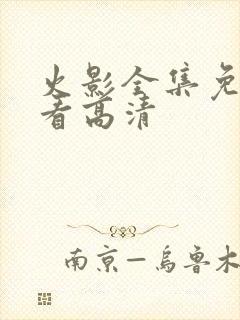 火影全集免
看高清
南京—乌鲁木